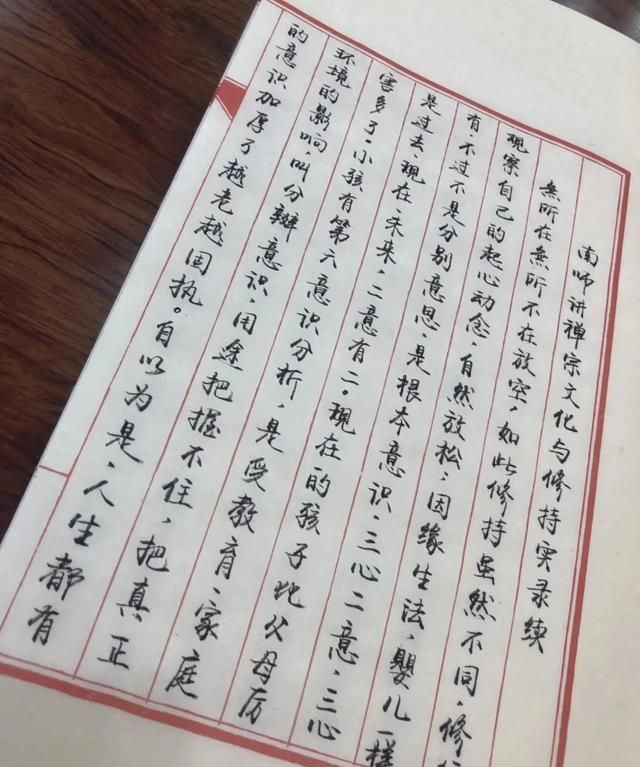 南师讲禅宗文化与修持实录续
無所在無所不在放空，如此修持虽然不同，修持
观察自己的起心动念，自然放松，因缘生法，嬰儿一样
有，不过不是分别意思，是根本意识，三心二意，三心
是过去、现在、未来，二意有二。现在的孩子比父母厉
害多了，小孩有第六意识分析，是受教育、家庭
环境的影响，叫分辦意识，用途把握不住，把真正
的意识加厚了越老越固执。自以为是，人生都有